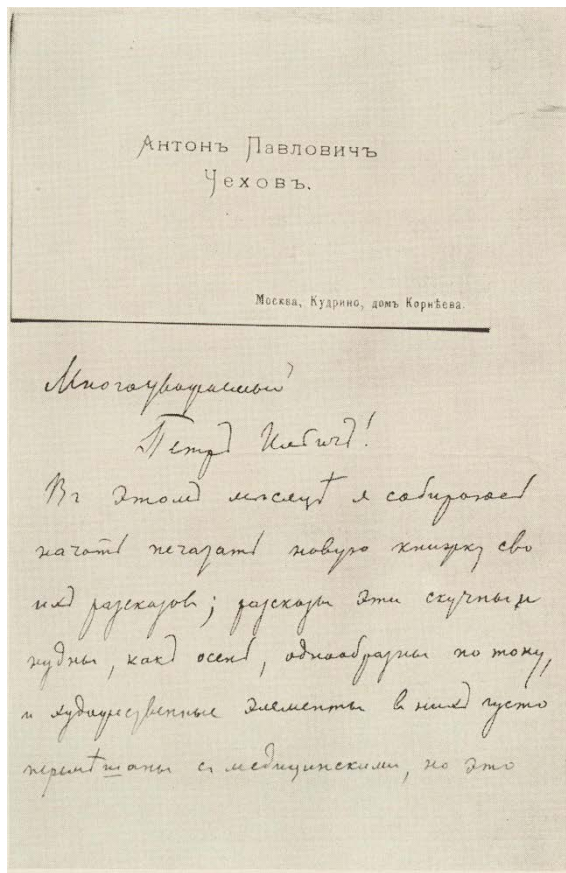 Антонъ Павловичъ
Чеховъ.
Москва, Кудрино, домъ Корнѣева.
Многоуважаемый
Петръ Ильичъ!
Въ этомъ мѣсяцѣ я собираюсь
начать печатать новую книжку сво
ихъ разсказовъ; разсказы эти скучны и
нудны, какъ осень, однообразны по тону,
и художественные элементы въ нихъ густо
перемѣшаны съ медицинскими, но это